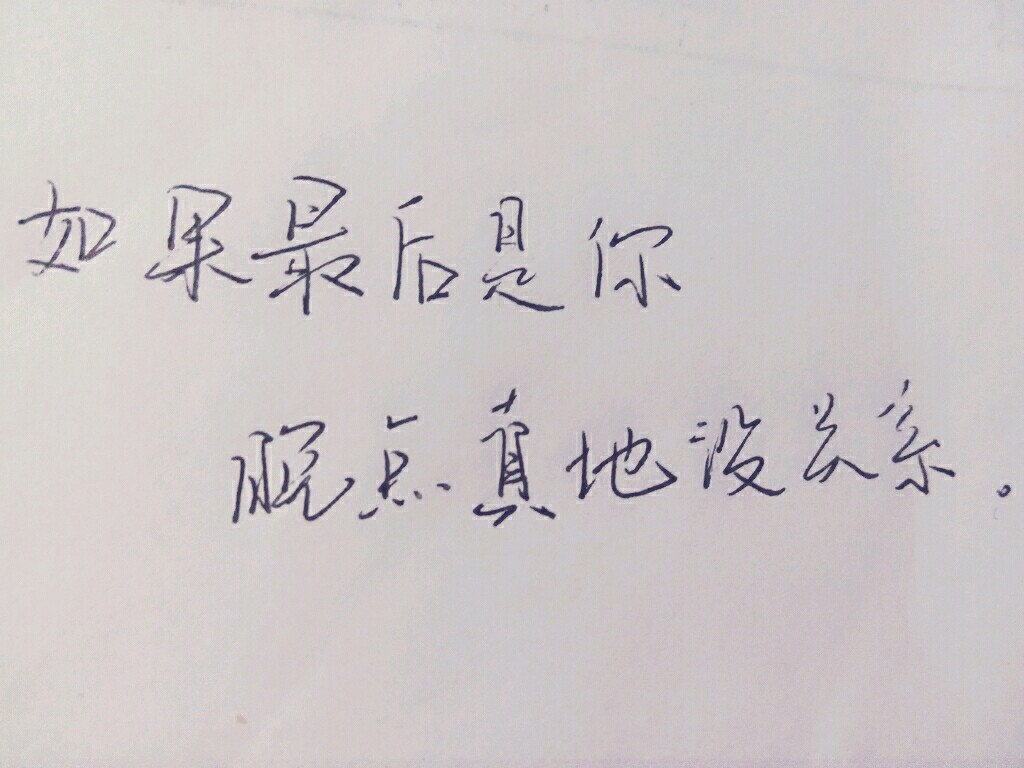 如果最后是你
晚点真地没关系。